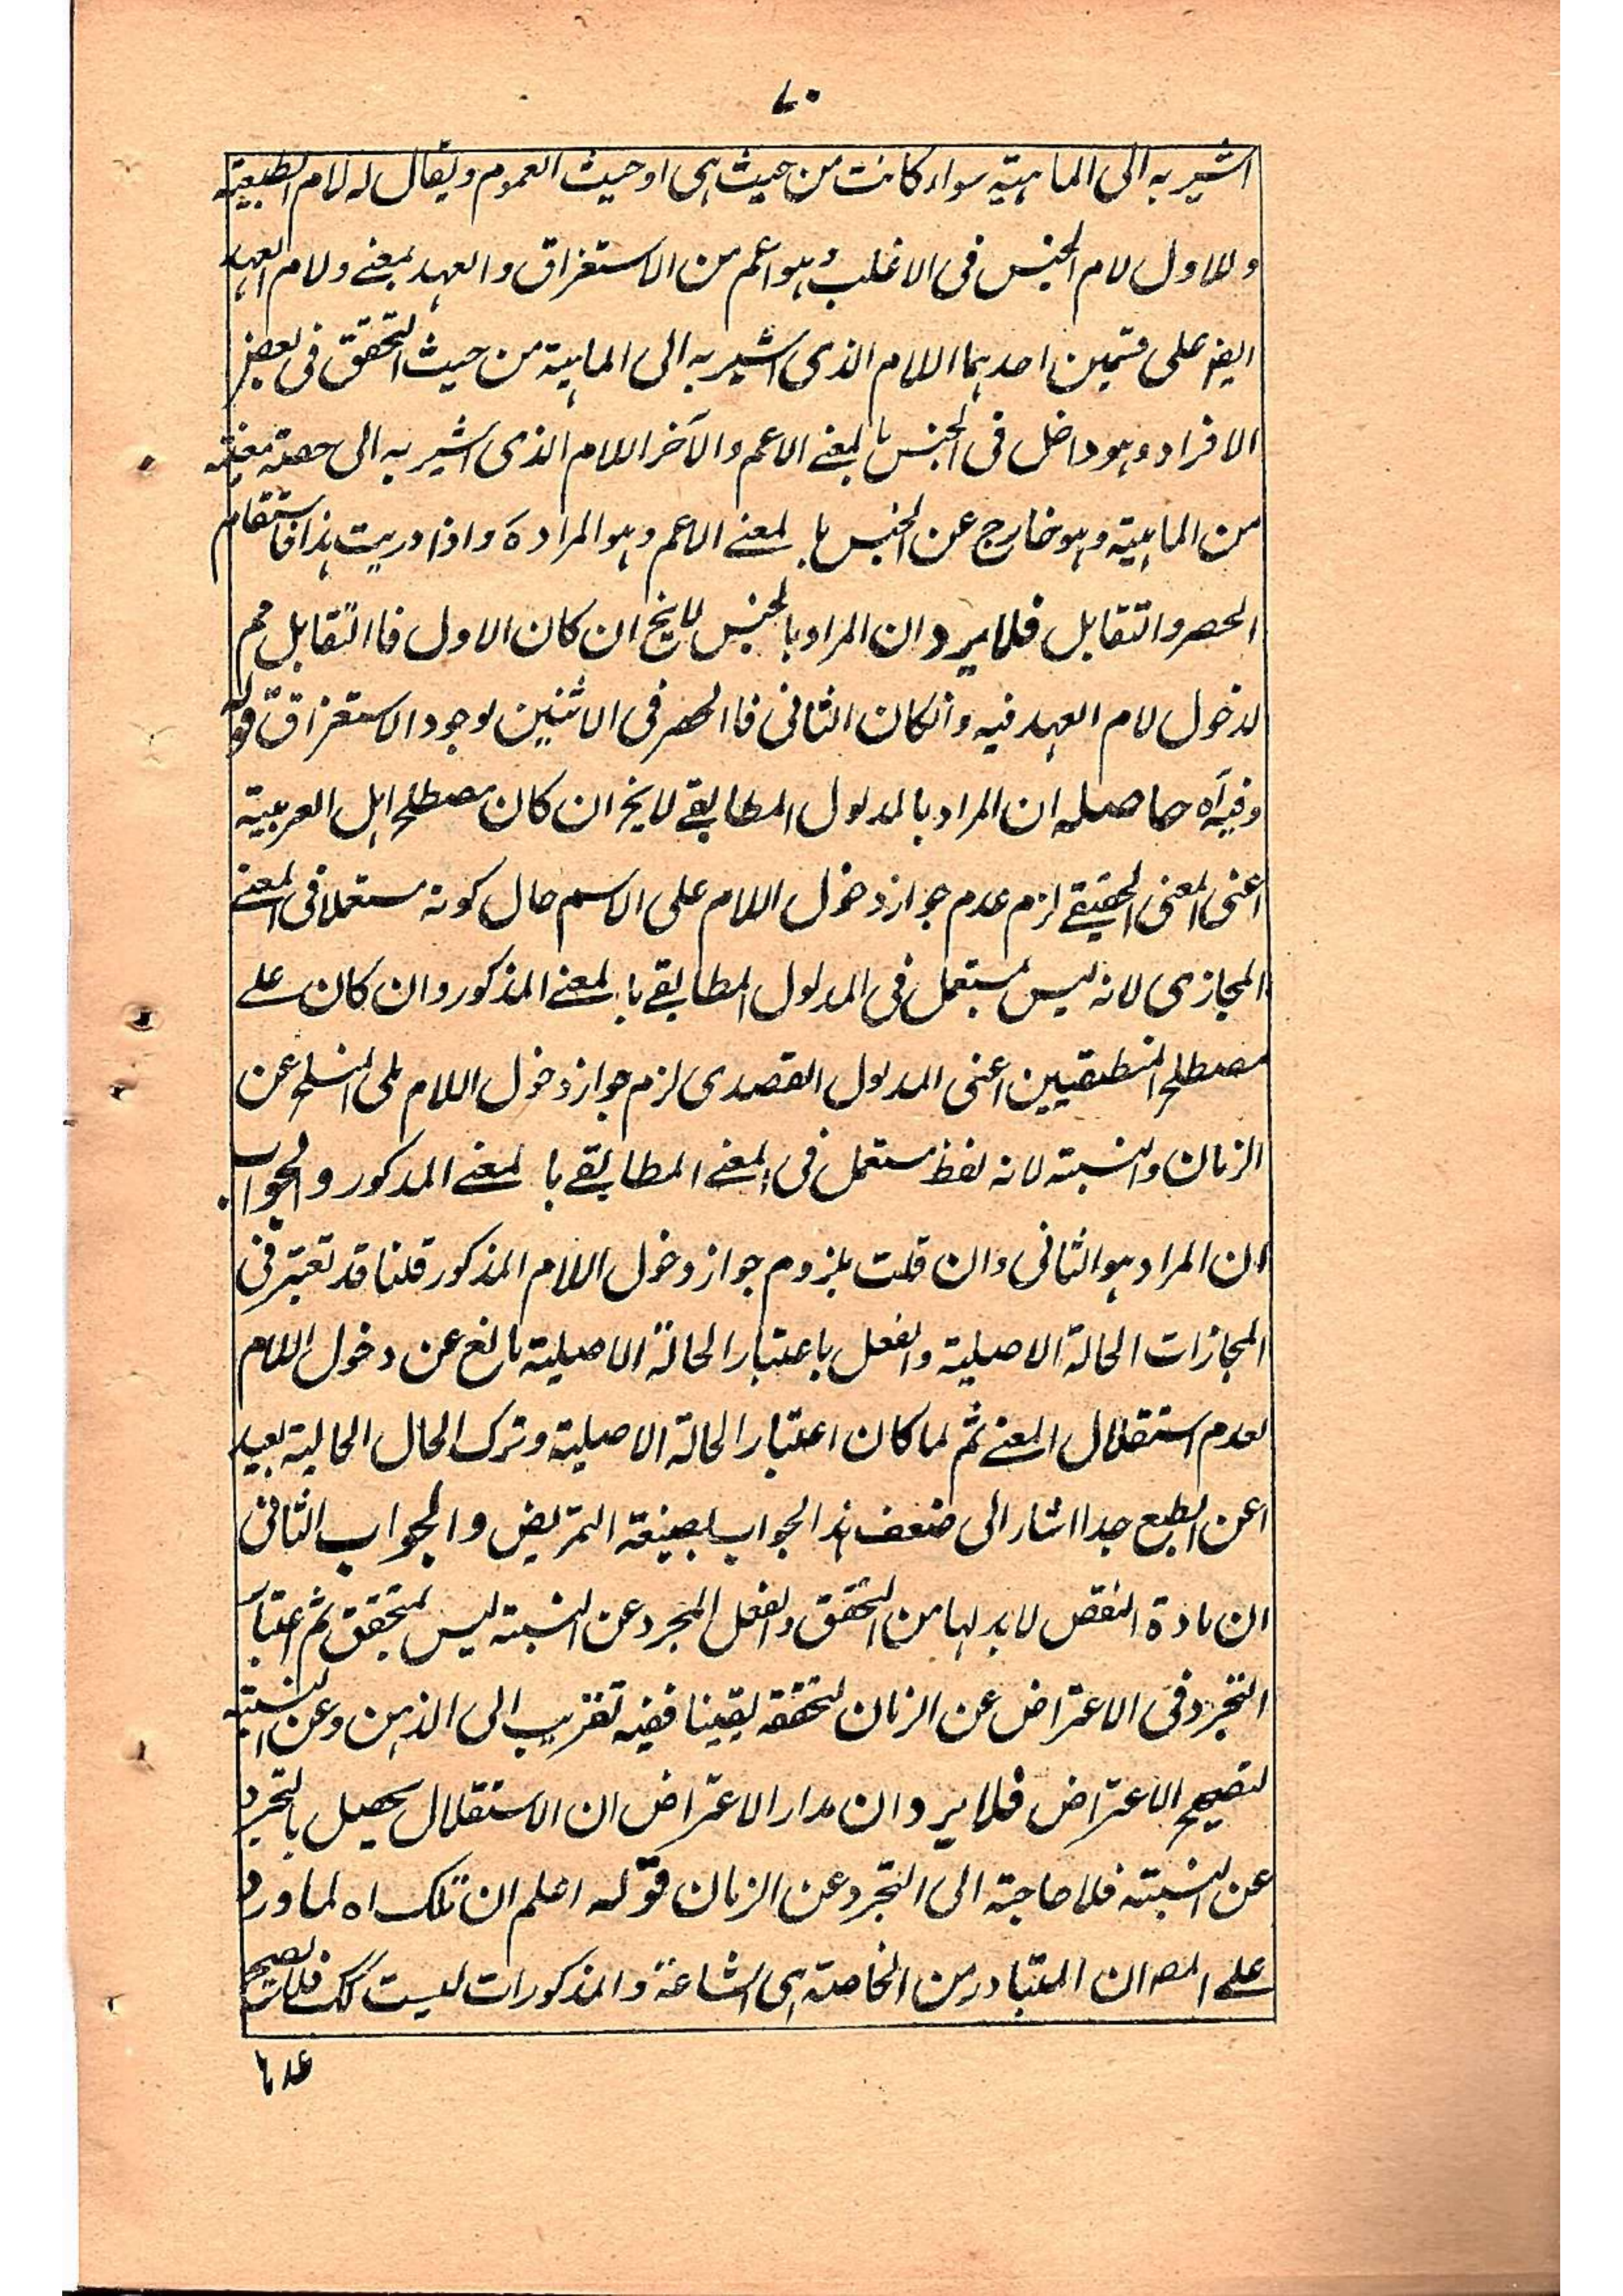 ٧٠
اشير به الى الماهية سواء كانت من حيث هى او حيث العموم ويقال له لام الطبيعة
وللاول لام الجنس فى الاغلب وهو اعم من الاستغراق والعهد بمعنے ولام العهد
ايضر على قسمين احدهما اللام الذى اشير به الى الماهية من حيث التحقق فى بعض
الافراد وهو داخل فى الجنس بالمعنے الاعم والآخر اللام الذى اشير به الى حصة معينة
من الماهية وهو خارج عن الجنس بالمعنے الاعم وهو المراد ة واذا دريت هذا فاستقام
الحصر والتقابل فلا يرد ان المراد بالجنس لايخ ان كان الاول فالتقابل مم
لدخول لام العهد فيه وانكان الثانى فالحصر فى الاثنين لوجود الاستغراق قوله
وفيه آه حاصله ان المراد بالمدلول المطابقے لايخ ان كان مصطلح اهل العربية
اعنى المعنى الحقيقے لزم عدم جواز دخول اللام على الاسم حال كونه مستعملا فى المعنے
المجازى لانه ليس بمستعمل فى المدلول المطابقے بالمعنے المذكور وان كان علے
مصطلح المنطقيين اعنى المدلول القصدى لزم جواز دخول اللام على المنسلخ عن
الزمان والنسبة لانه لفظ مستعمل فى المعنے المطابقے بالمعنے المذكور والجواب
ان المراد هو الثانى وان قلت بلزوم جواز دخول اللام المذكور قلنا قد تعتبر فى
المجازات الحالة الاصلية والفعل باعتبار الحالة الاصلية مانع عن دخول اللام
لعدم استقلال المعنے ثم لما كان اعتبار الحالة الاصلية وترك الحال الحالية بعيد
اعن الطبع جدا اشار الى ضعف هذ الجواب بصيغة التمريض والجواب الثانى
ان مادة النقض لابد لها من التحقق والفعل المجرد عن النسبة ليس بمتحقق ثم اعتبار
التجرد فى الاعتراض عن الزمان لتحققه يقينا ففيه تقريب الى الذهن وعن النسبة
لتصحيح الاعتراض فلا يرد ان مدار الاعتراض ان الاستقلال يحصل بالتجرد
عن النسبة فلا حاجة الى التجرد عن الزمان قوله اعلم ان تلك اه لما ورد
علے المصر ان المتبادر من الخاصة هى الشاملة والمذكورات ليست كك فلا يصح